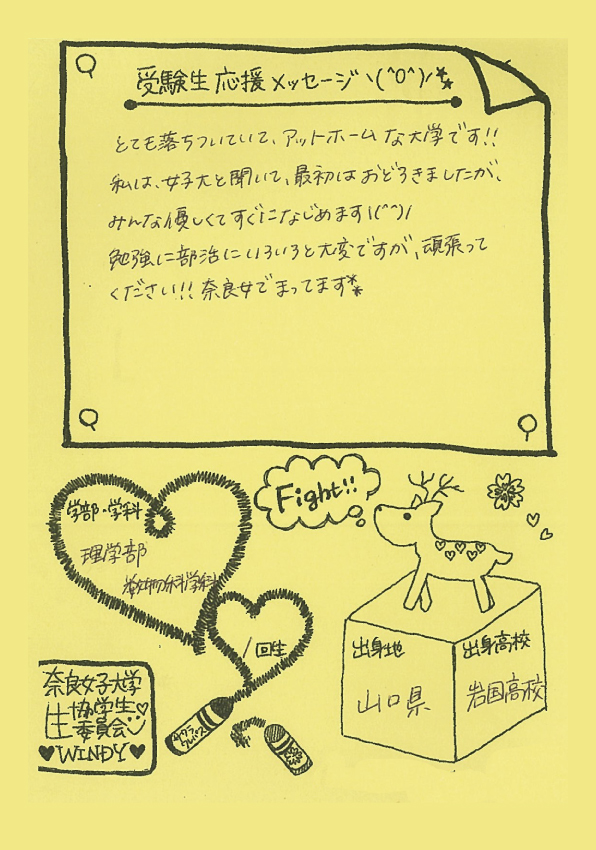 受験生応援メッセージヽ(^o^)ノ
とても落ちついていて、アットホームな大学です!!
私は、女子大と聞いて、最初はおどろきましたが、
みんな優しくてすぐになじめます\(^^)/
勉強に部活にいろいろと大変ですが、頑張って
ください!! 奈良女でまってます
Fight!!
学部・学科
理学部
1回生
出身地
山口県
出身高校
岩国高校
奈良女子大学
生協学生
委員会
♥WINDY♥
サクラ
クレパス